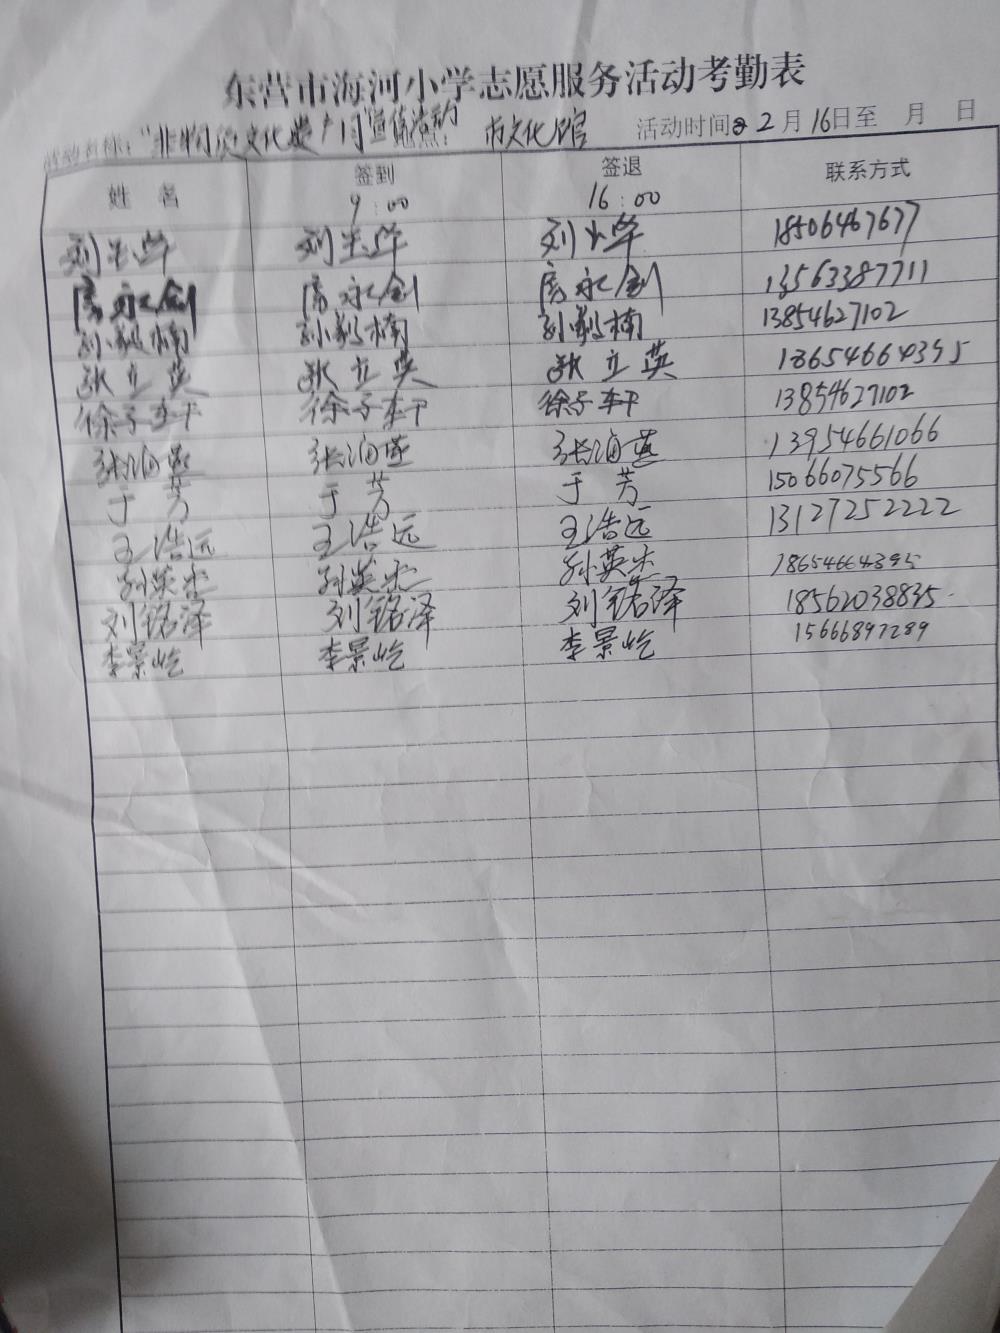 东营市海河小学志愿服务活动考勤表
活动名称：“非物质文化遗产 市文化馆 活动时间 2月16日至 月 日
姓 名 签到 签退 联系方式
9：00 16：00
刘 刘 刘 18506467677
房永剑 房永剑 房永剑 13563387711
孙毅楠 孙毅楠 孙毅楠 13854627102
张立英 张立英 张立英 18654664395
徐子轩 徐子轩 徐子轩 13854627102
张海燕 张海燕 张海燕 13954661066
于芳 于芳 于芳 15066075566
王浩远 王浩远 王浩远 13127252222
孙英杰 孙英杰 孙英杰 18654664395
刘铭泽 刘铭泽 刘铭泽 18562038835
李景屹 李景屹 李景屹 15666897289